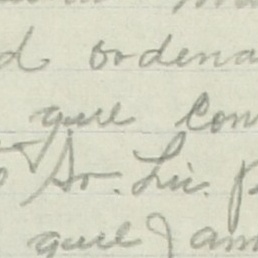 d ordena
que con
Sr. Lic. p
que